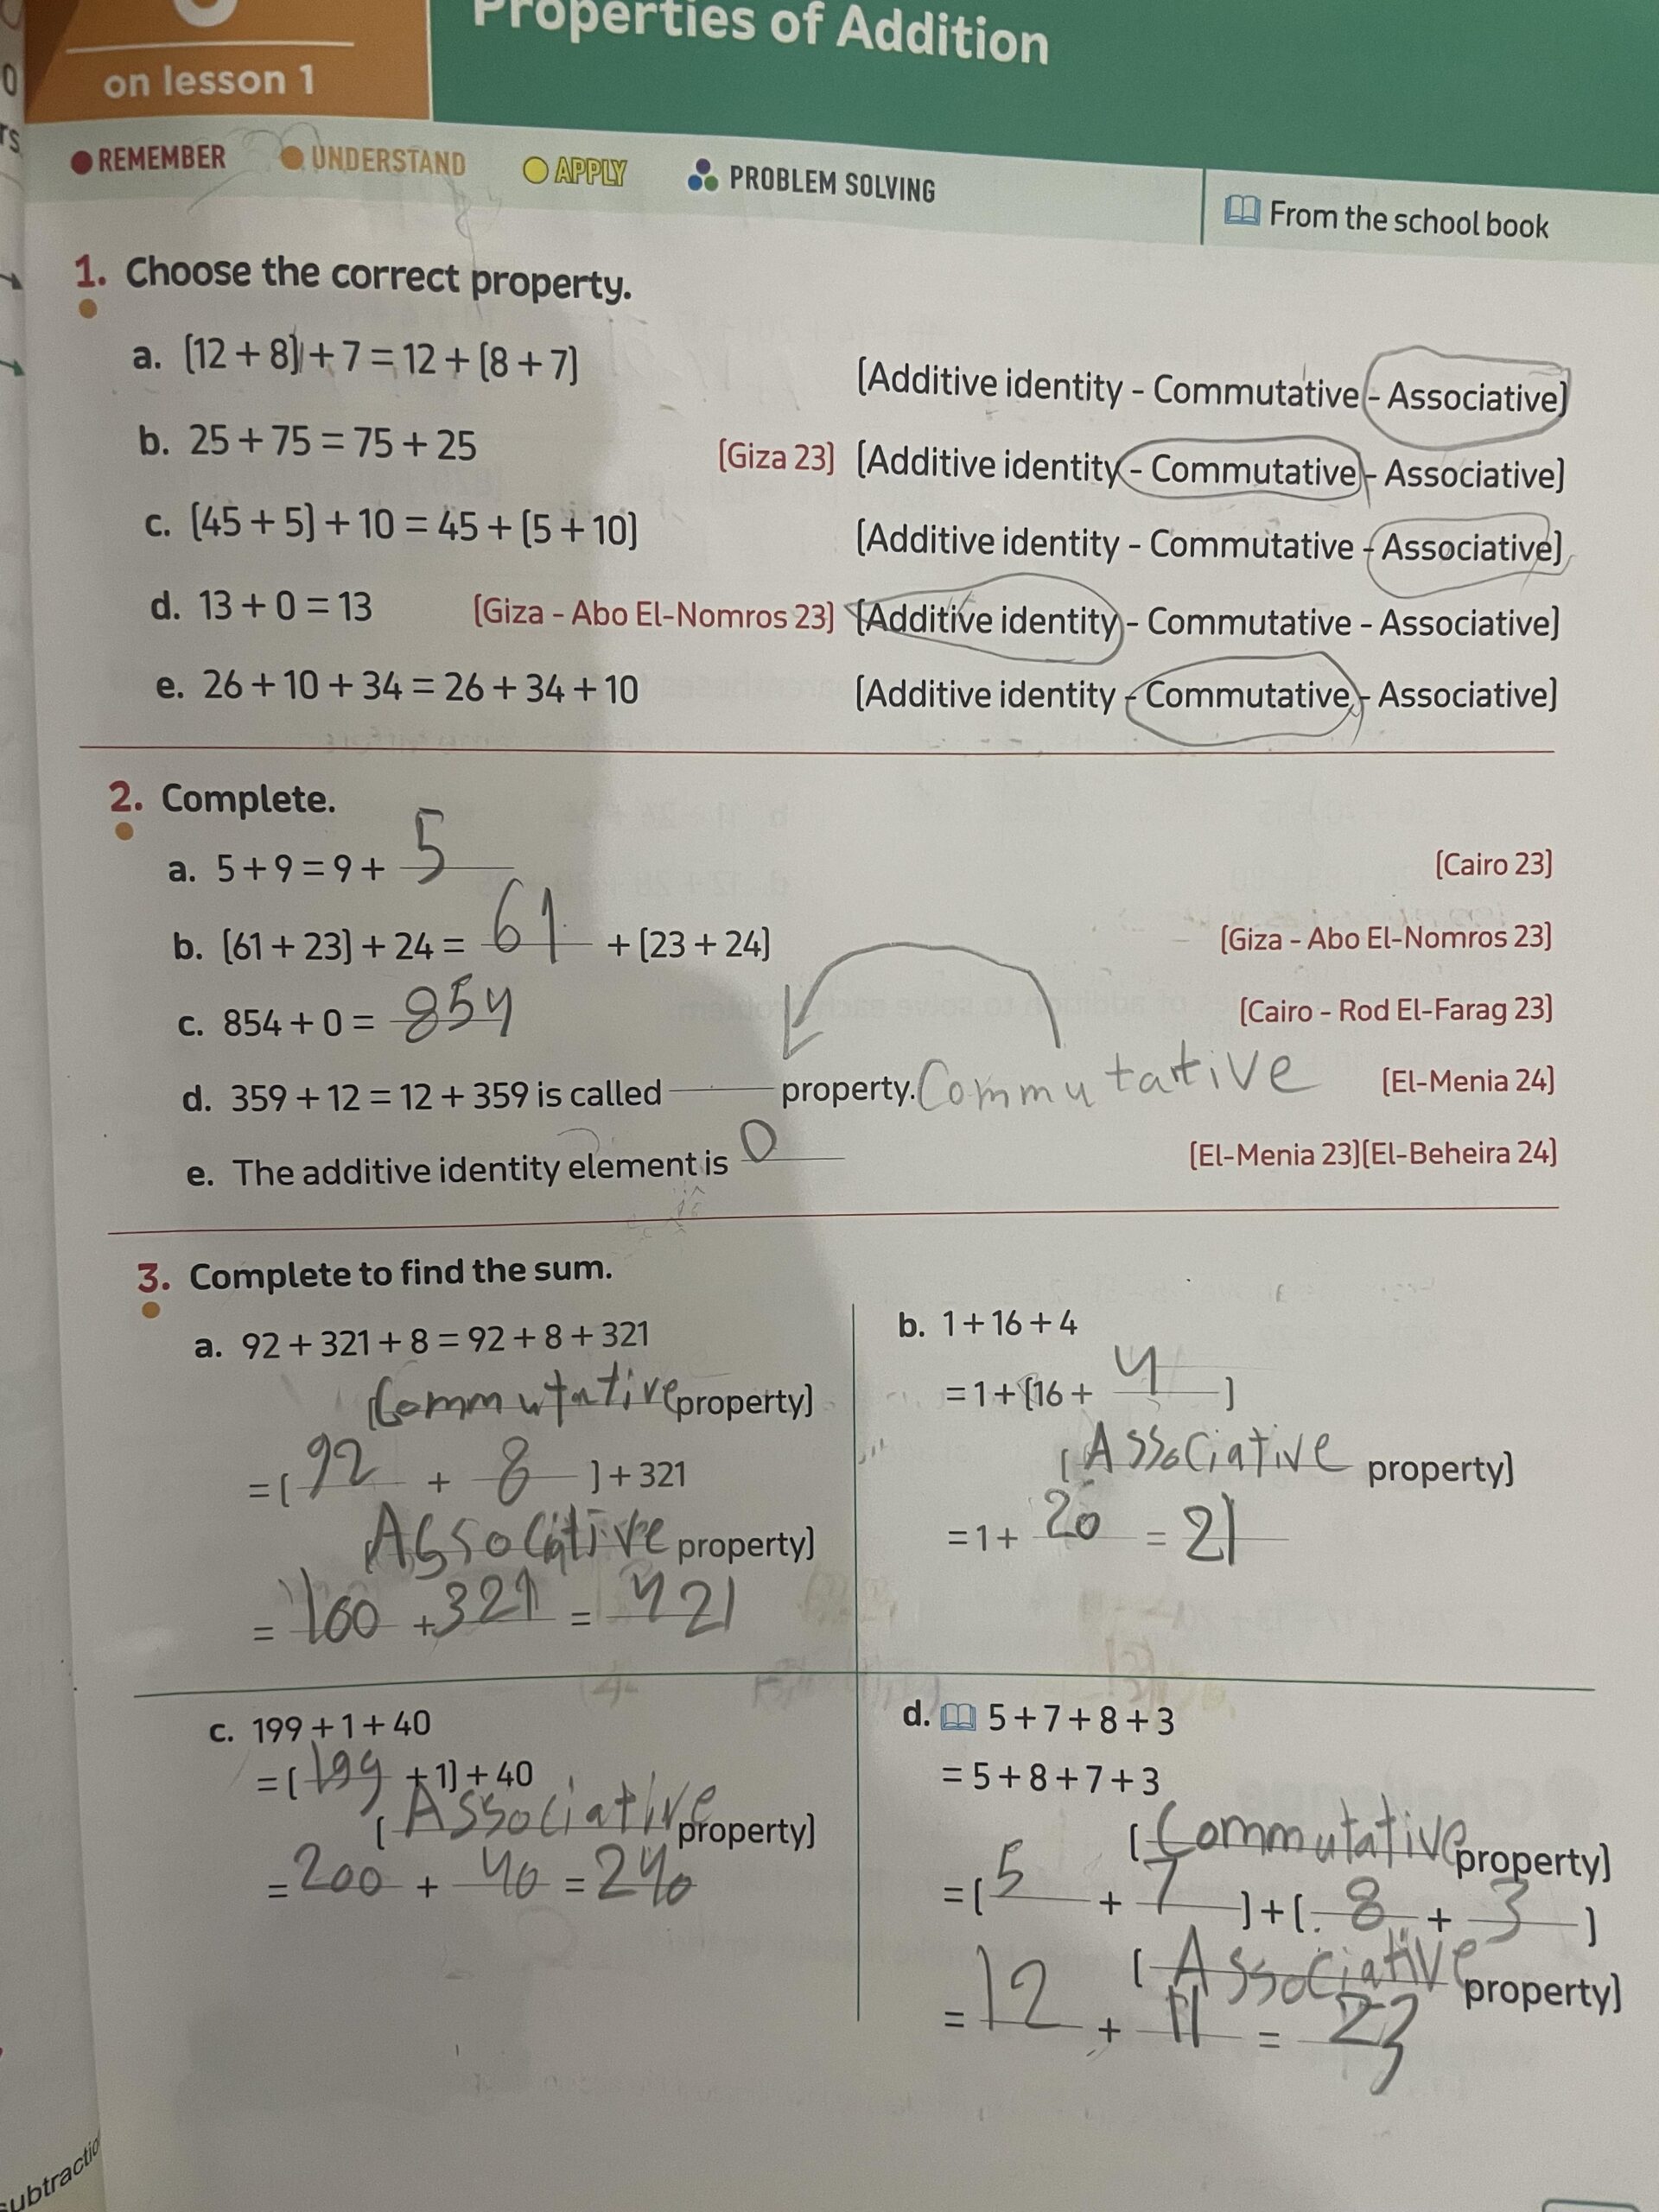 Properties of Addition
on lesson 1
REMEMBER UNDERSTAND APPLY PROBLEM SOLVING
From the school book
1. Choose the correct property.
a. (12 + 8) + 7 = 12 + (8 + 7) (Additive identity - Commutative - Associative)
b. 25 + 75 = 75 + 25 (Giza 23) (Additive identity - Commutative - Associative)
c. (45 + 5) + 10 = 45 + (5 + 10) (Additive identity - Commutative - Associative)
d. 13 + 0 = 13 (Giza - Abo El-Nomros 23) (Additive identity - Commutative - Associative)
e. 26 + 10 + 34 = 26 + 34 + 10 (Additive identity - Commutative - Associative)
2. Complete.
a. 5 + 9 = 9 + 5 (Cairo 23)
b. (61 + 23) + 24 = 61 + (23 + 24) (Giza - Abo El-Nomros 23)
c. 854 + 0 = 854 (Cairo - Rod El-Farag 23)
d. 359 + 12 = 12 + 359 is called property. Commutative (El-Menia 24)
e. The additive identity element is 0 (El-Menia 23)(El-Beheira 24)
3. Complete to find the sum.
a. 92 + 321 + 8 = 92 + 8 + 321
(Commutative property)
= (92 + 8) + 321
(Assocative property)
= 100 + 321 = 421
b. 1 + 16 + 4
= 1 + (16 + 4)
(Associative property)
= 1 + 20 = 21
c. 199 + 1 + 40
= (199 + 1) + 40
(Associative property)
= 200 + 40 = 240
d. 5 + 7 + 8 + 3
= 5 + 8 + 7 + 3
(Commutative property)
= (5 + 7) + (8 + 3)
(Associative property)
= 12 + 11 = 23